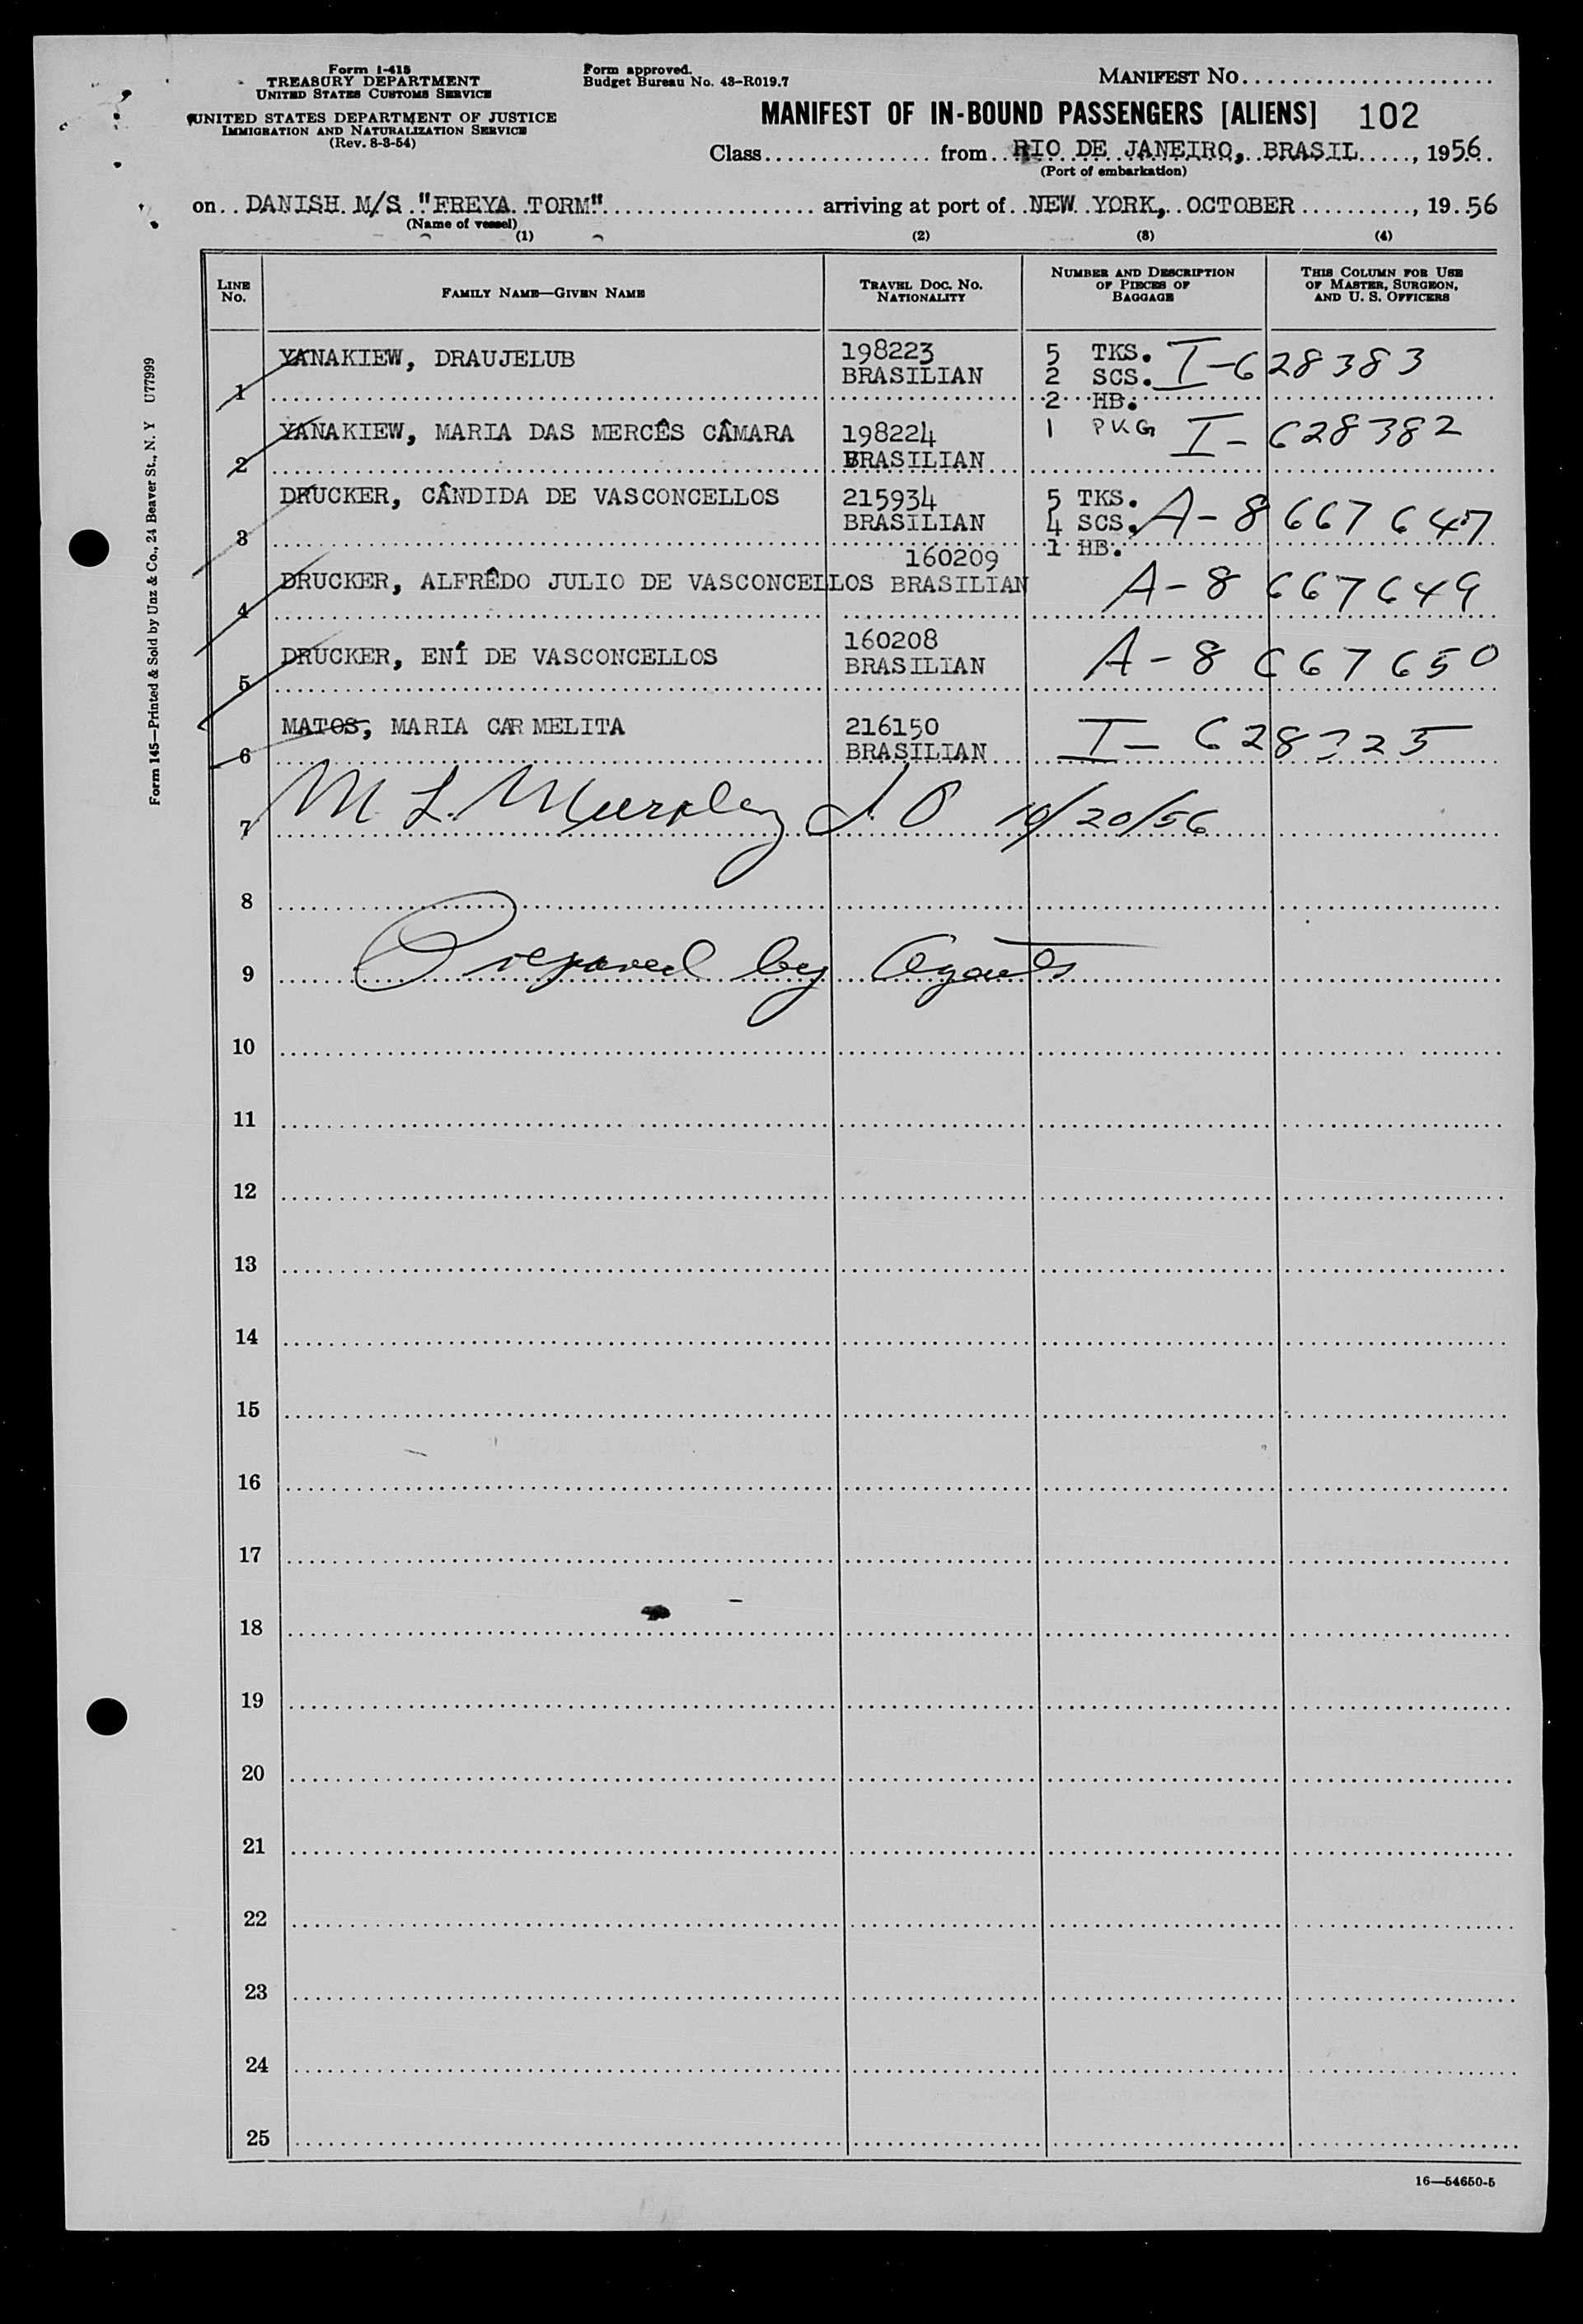 Form I-415
TREASURY DEPARTMENT
UNITED STATES CUSTOMS SERVICE
UNITED STATES DEPARTMENT OF JUSTICE
IMMIGRATION AND NATURALIZATION SERVICE
(Rev. 8-3-54)
Form approved.
Budget Bureau No. 43-R019.7
MANIFEST NO.
MANIFEST OF IN-BOUND PASSENGERS [ALIENS] 102
Class from RIO DE JANEIRO, BRASIL, 1956
(Port of embarkation)
on DANISH M/S "FREYA TORM" arriving at port of NEW YORK, OCTOBER, 1956
(Name of vessel)
(1) (2) (3) (4)
LINE No.
FAMILY NAME—GIVEN NAME
TRAVEL DOC. NO. NATIONALITY
NUMBER AND DESCRIPTION OF PIECES OF BAGGAGE
THIS COLUMN FOR USE OF MASTER, SURGEON, AND U. S. OFFICERS
1 YANAKIEW, DRAUJELUB 198223 BRASILIAN 5 TKS. 2 SCS. 2 HB. I-628383
2 YANAKIEW, MARIA DAS MERCÊS CÂMARA 198224 BRASILIAN 1 PKG I-628382
3 DRUCKER, CÂNDIDA DE VASCONCELLOS 215934 BRASILIAN 5 TKS. 4 SCS. 1 HB. A-8667647
4 DRUCKER, ALFRÊDO JULIO DE VASCONCELLOS 160209 BRASILIAN A-8667649
5 DRUCKER, ENÍ DE VASCONCELLOS 160208 BRASILIAN A-8667650
6 MATOS, MARIA CARMELITA 216150 BRASILIAN I-628325
7 M. L. Murphy I.O 10/20/56
8
9 Prepared by Agents
10
11
12
13
14
15
16
17
18
19
20
21
22
23
24
25
16—54650-5
Form 145—Printed & Sold by Unz & Co., 24 Beaver St., N. Y U77999